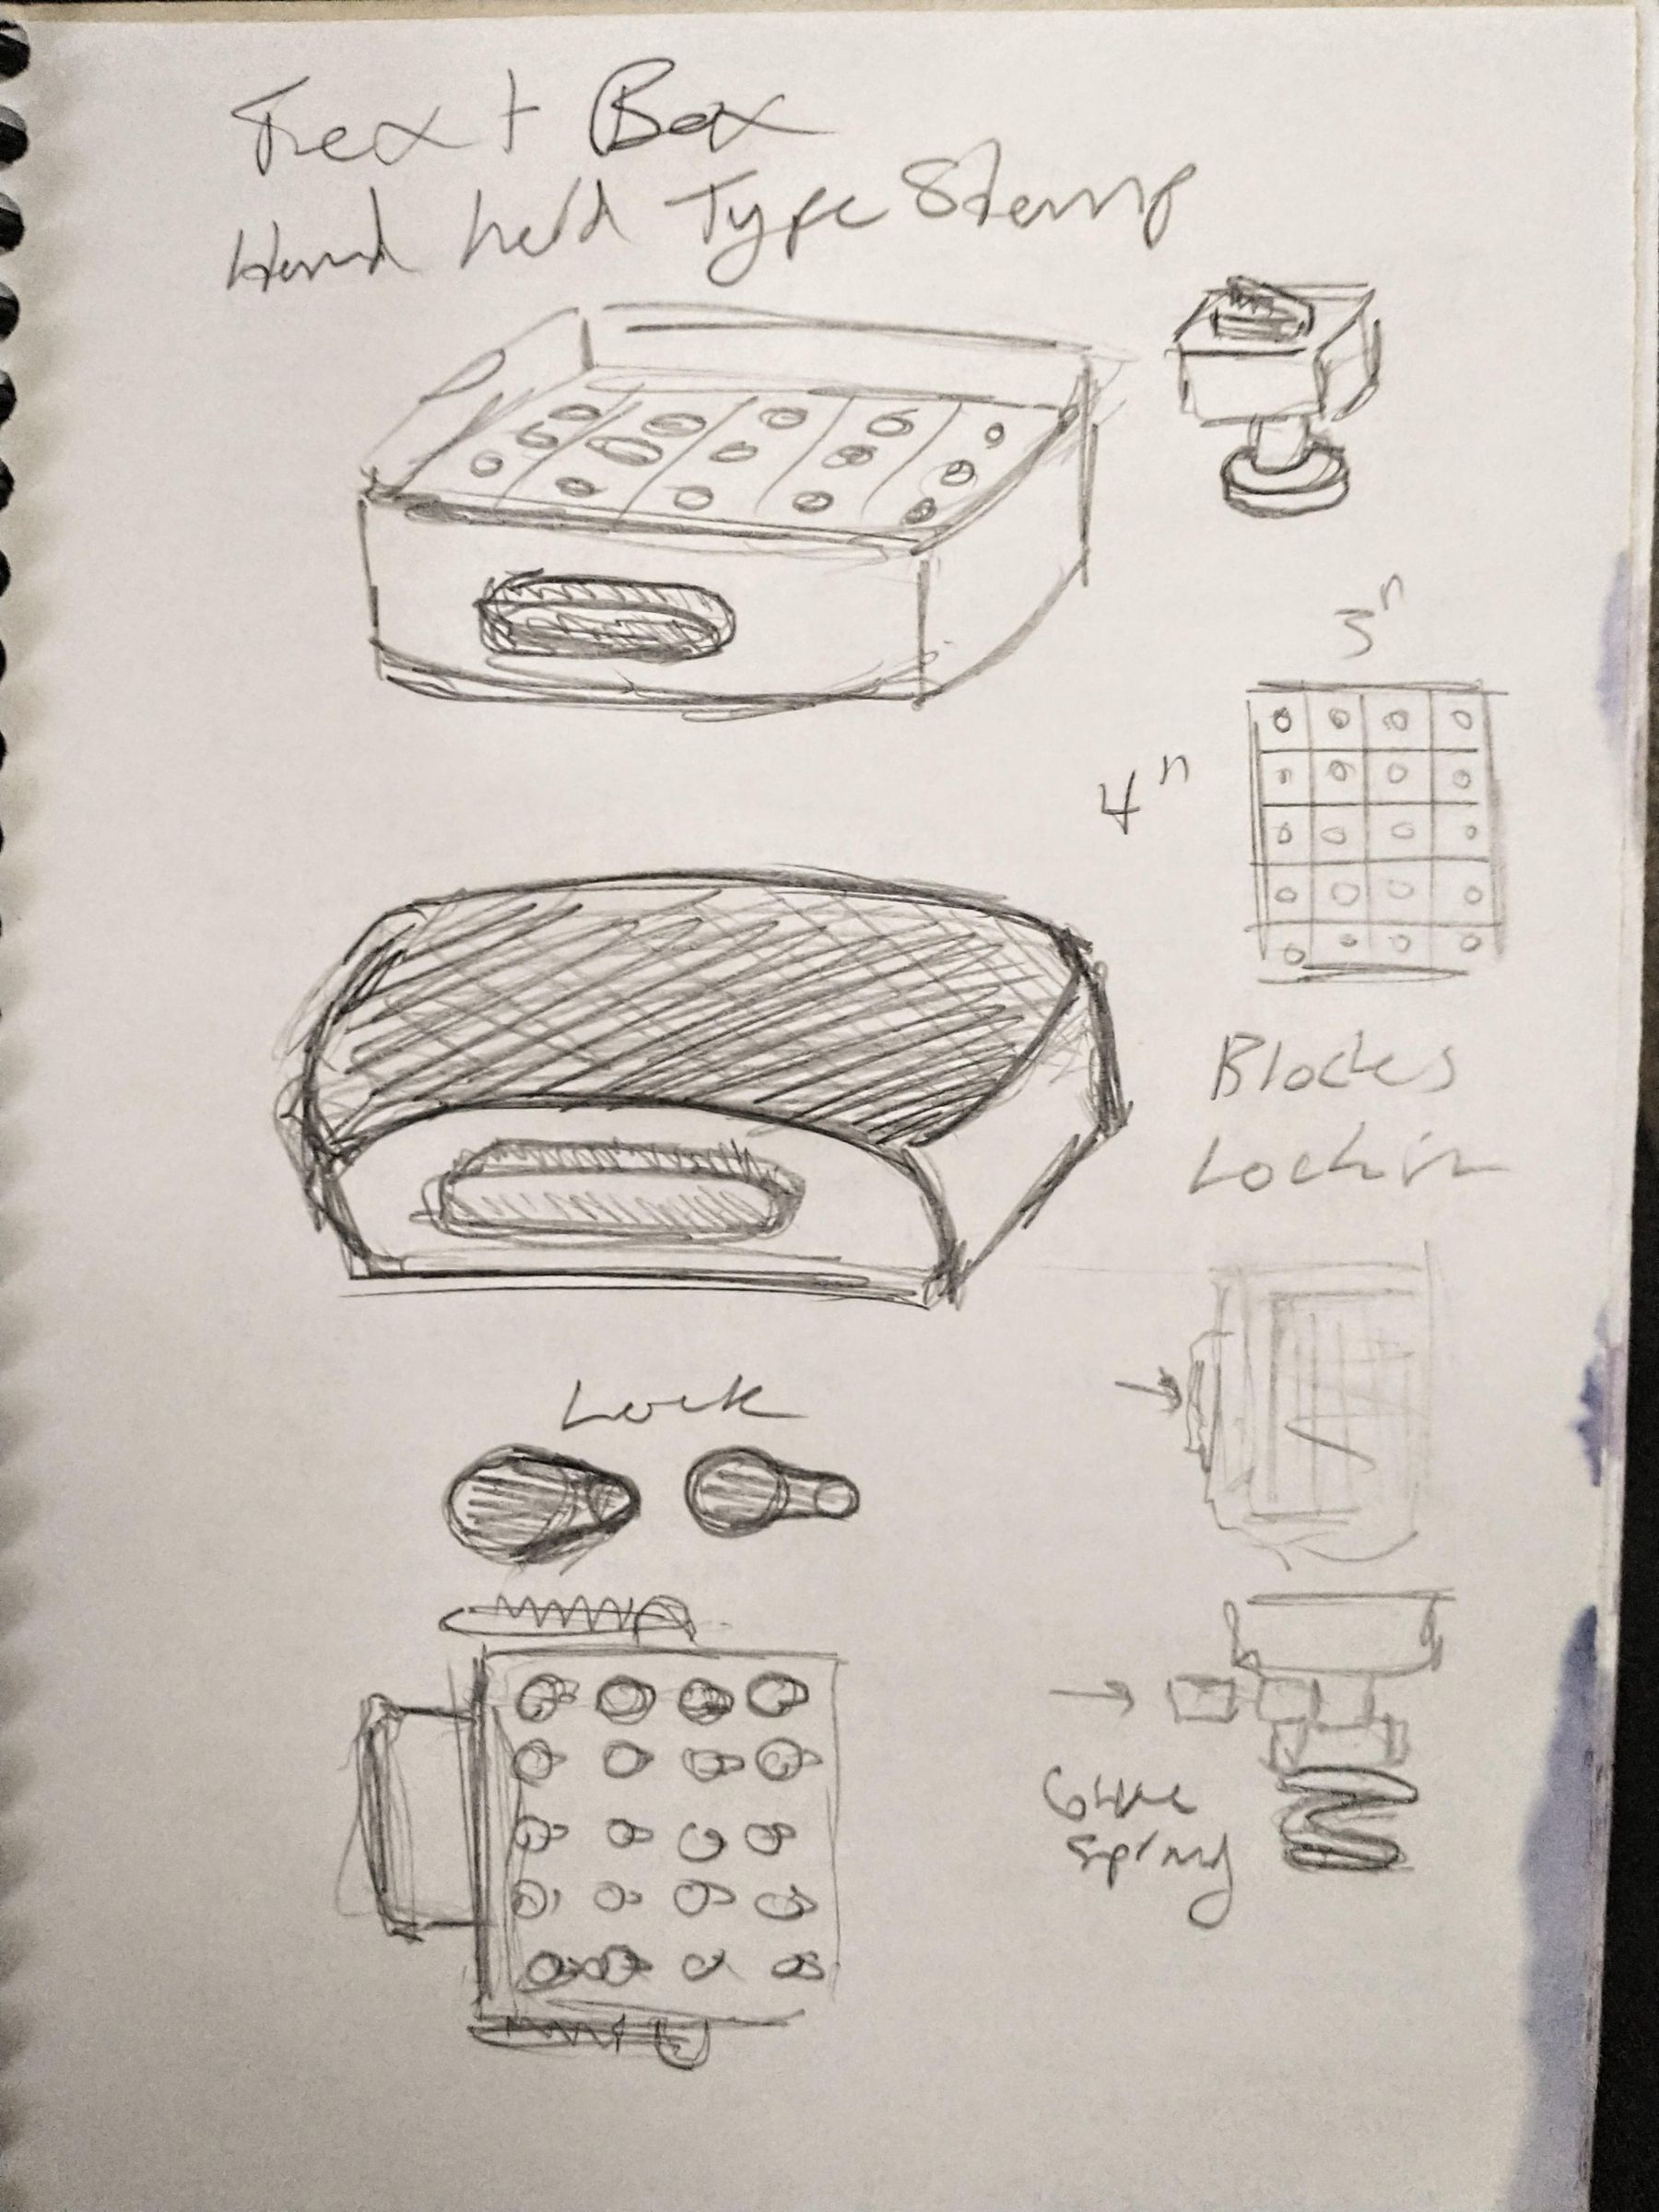 Text Box
Hand held Type Stamp
3"
4"
Blocks
Lock in
Lock
Spring